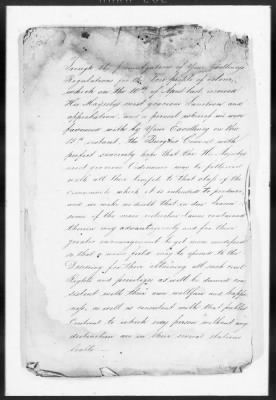 through the promulgation of Your Excellency's
Regulations for the free people of colour,
which on the 10th of April last received
His Majesty's most gracious sanction and
approbation and a perusal whereof we were
favoured with by Your Excellency on the
15th instant. The Burgher Council with
perfect sincerity hope that
most gracious may be followed
with all the benefit to that class of the
community which it is intended to produce,
and we make no doubt that in due time
some of the more restrictive laws contained
therein may advantageously and for their
greater encouragement to get more
so that a more field may be opened to the
Deserving for their obtaining all such civil
Rights and privileges as will be deemed con-
sistent with their own wellfare and happi-
ness, as well as consistent with that public
to which any person without any
distinction are in their several stations